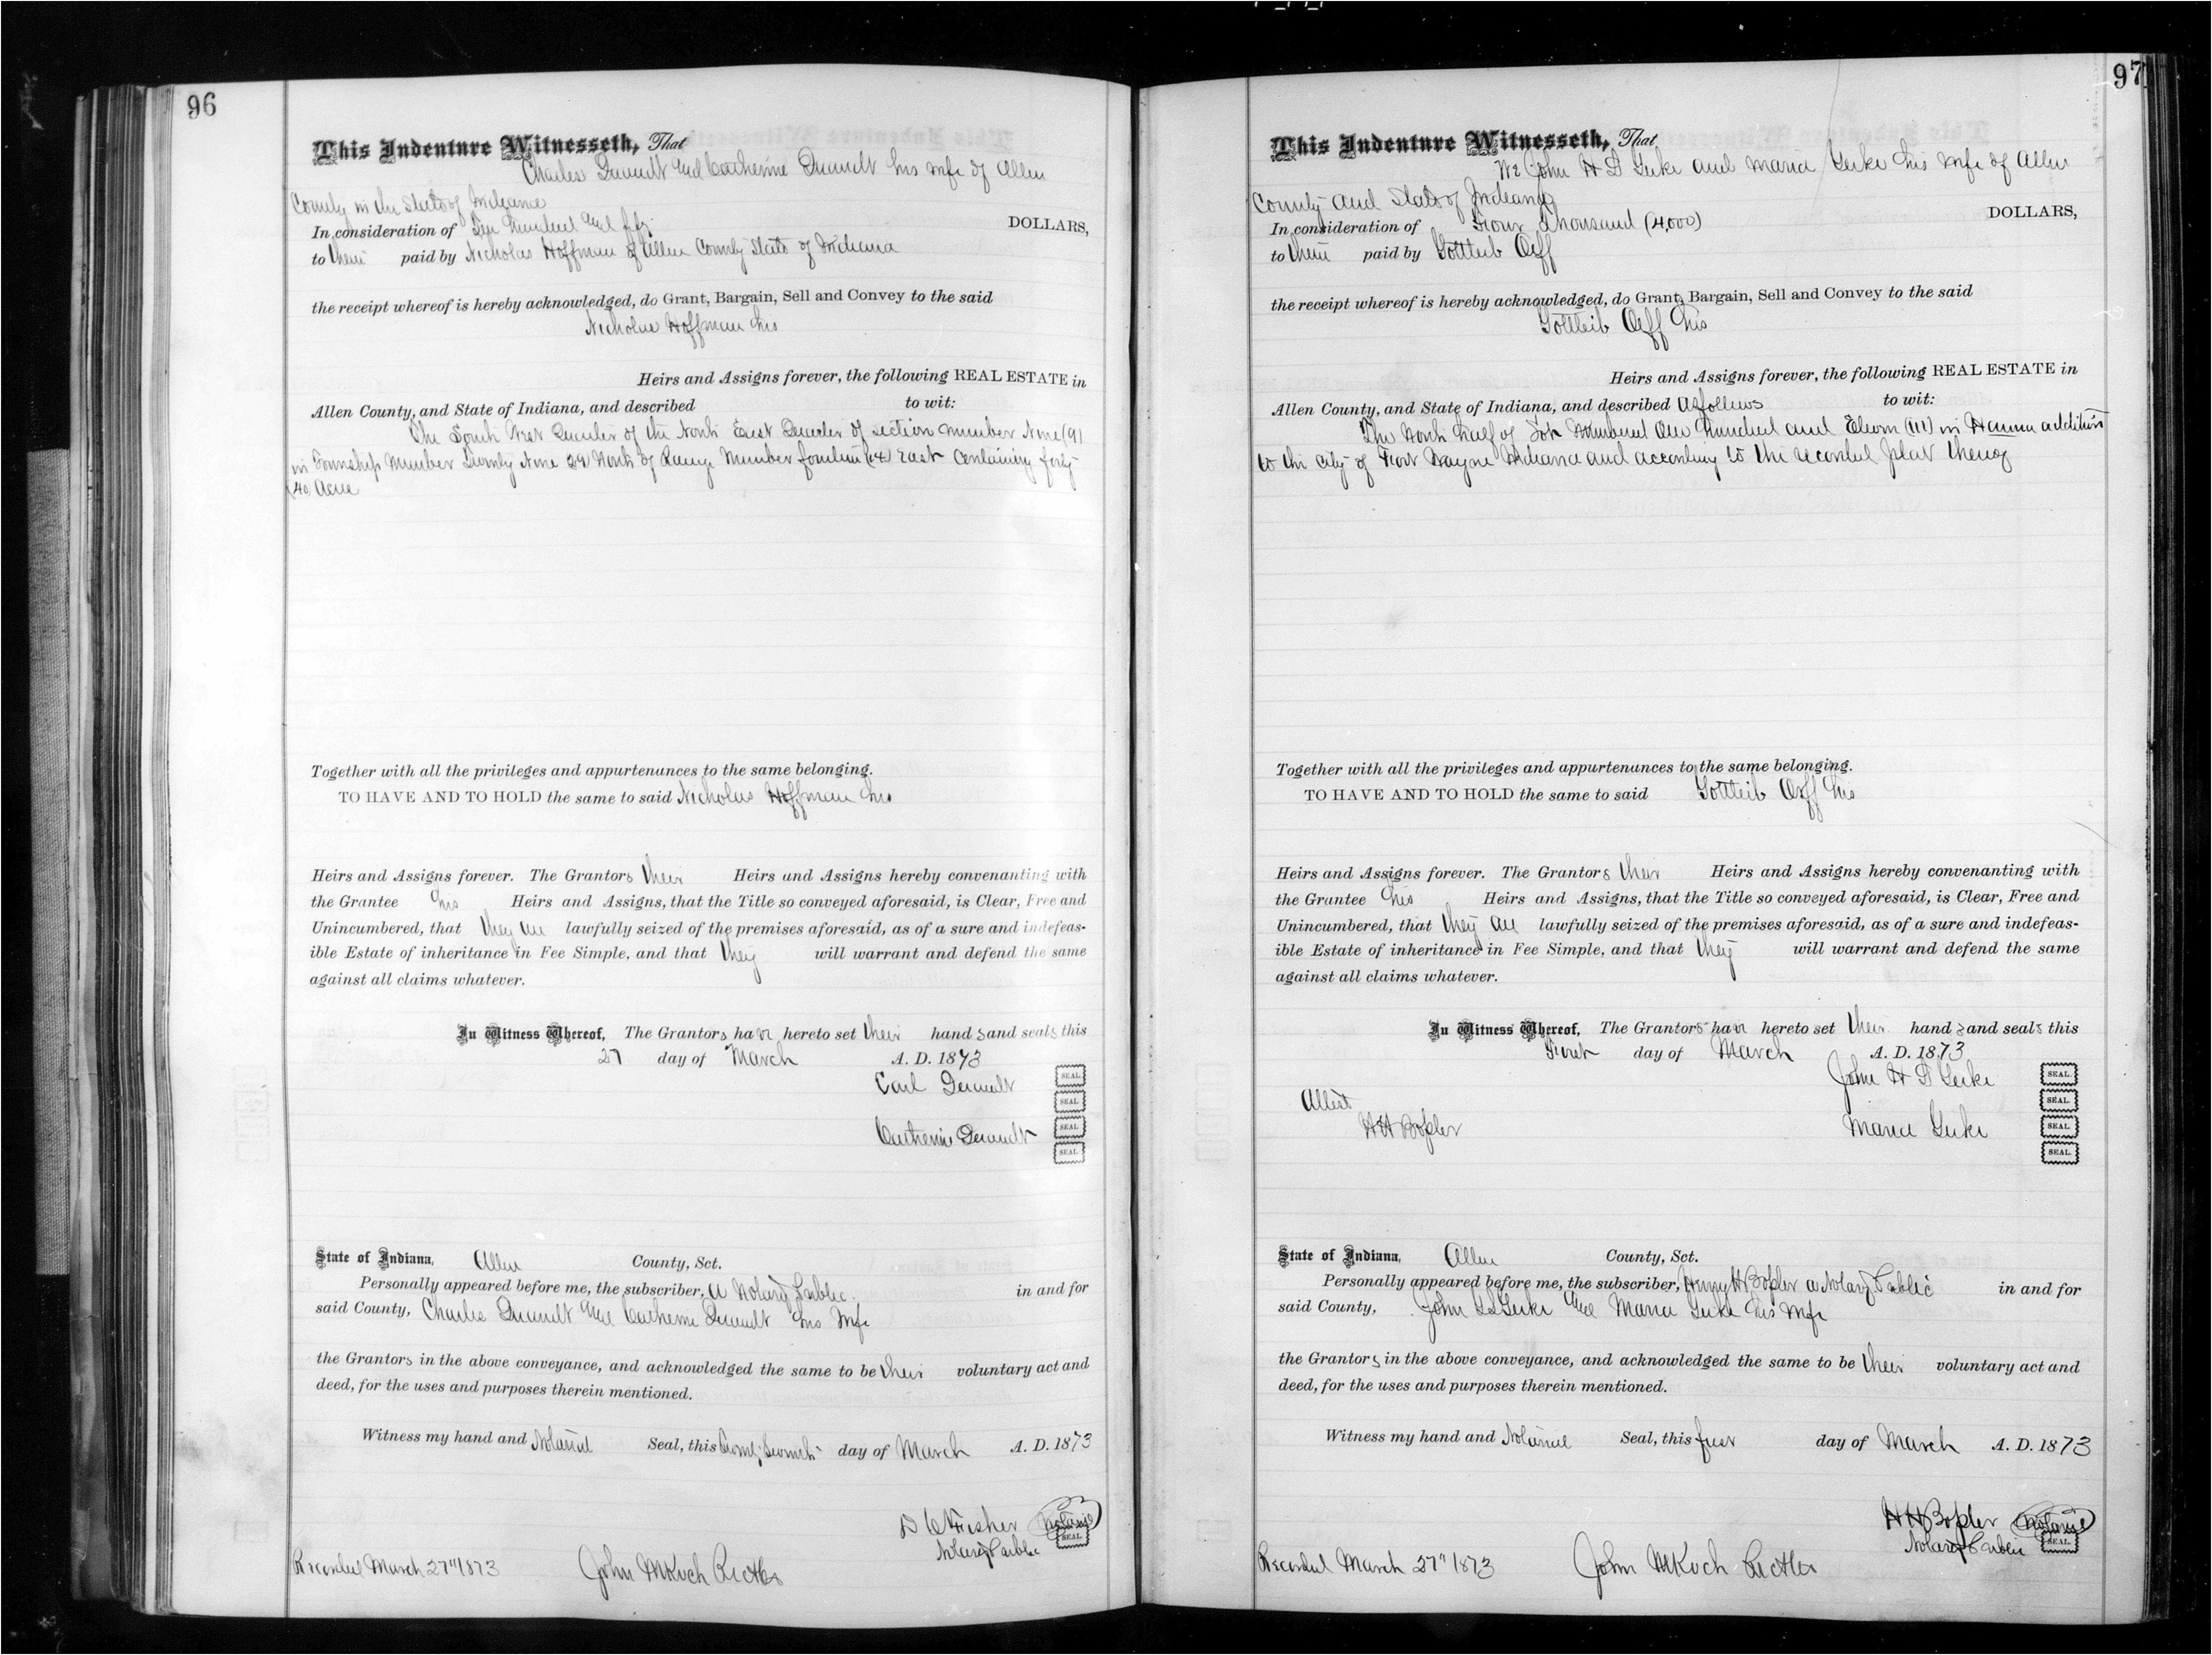 96
This Indenture Witnesseth, That
Charles and Catherine his wife of Allen
County in the State of Indiana
In consideration of hundred and DOLLARS,
to them paid by Nicholas Hoffman of Allen County State of Indiana
the receipt whereof is hereby acknowledged, do Grant, Bargain, Sell and Convey to the said
Nicholas Hoffman his
Heirs and Assigns forever, the following REAL ESTATE in
Allen County, and State of Indiana, and described to wit:
The South West Quarter of the North East Quarter of section number Nine (9)
in Township Number Twenty Nine 29 North of Range Number fourteen (14) East Containing forty
(40) Acres
Together with all the privileges and appurtenances to the same belonging.
TO HAVE AND TO HOLD the same to said Nicholas Hoffman his
Heirs and Assigns forever. The Grantors their Heirs and Assigns hereby convenanting with
the Grantee his Heirs and Assigns, that the Title so conveyed aforesaid, is Clear, Free and
Unincumbered, that they are lawfully seized of the premises aforesaid, as of a sure and indefeas-
ible Estate of inheritance in Fee Simple, and that they will warrant and defend the same
against all claims whatever.
In Witness Whereof, The Grantors have hereto set their hands and seals this
27 day of March A. D. 1873
Carl SEAL.
SEAL.
Catherine SEAL.
SEAL.
State of Indiana, Allen County, Sct.
Personally appeared before me, the subscriber, a Notary Public in and for
said County, Charles and Catherine his wife
the Grantors in the above conveyance, and acknowledged the same to be their voluntary act and
deed, for the uses and purposes therein mentioned.
Witness my hand and Notarial Seal, this Twenty Seventh day of March A. D. 1873
D C Fisher Notarial
Notary Public SEAL.
Recorded March 27" 1873 John M Koch Rec
97
This Indenture Witnesseth, That
We John H D Gerke and Maria Gerke his wife of Allen
County and State of Indiana
In consideration of Four Thousand (4,000) DOLLARS,
to them paid by Gottleib Orff
the receipt whereof is hereby acknowledged, do Grant, Bargain, Sell and Convey to the said
Gottleib Orff his
Heirs and Assigns forever, the following REAL ESTATE in
Allen County, and State of Indiana, and described as follows to wit:
The North half of Lot Numbered One hundred and Eleven (111) in Hanna addition
to the City of Fort Wayne Indiana and according to the recorded plat thereof
Together with all the privileges and appurtenances to the same belonging.
TO HAVE AND TO HOLD the same to said Gottleib Orff his
Heirs and Assigns forever. The Grantors their Heirs and Assigns hereby convenanting with
the Grantee his Heirs and Assigns, that the Title so conveyed aforesaid, is Clear, Free and
Unincumbered, that they are lawfully seized of the premises aforesaid, as of a sure and indefeas-
ible Estate of inheritance in Fee Simple, and that they will warrant and defend the same
against all claims whatever.
In Witness Whereof, The Grantors have hereto set their hands and seals this
First day of March A. D. 1873
John H D Gerke SEAL.
Attest SEAL.
H H Maria Gerke SEAL.
SEAL.
State of Indiana, Allen County, Sct.
Personally appeared before me, the subscriber, Henry H a Notary Public in and for
said County, John Gerke and Maria Gerke his wife
the Grantors in the above conveyance, and acknowledged the same to be their voluntary act and
deed, for the uses and purposes therein mentioned.
Witness my hand and Notarial Seal, this first day of March A. D. 1873
H H Notarial
Notary Public SEAL.
Recorded March 27" 1873 John M Koch Rec